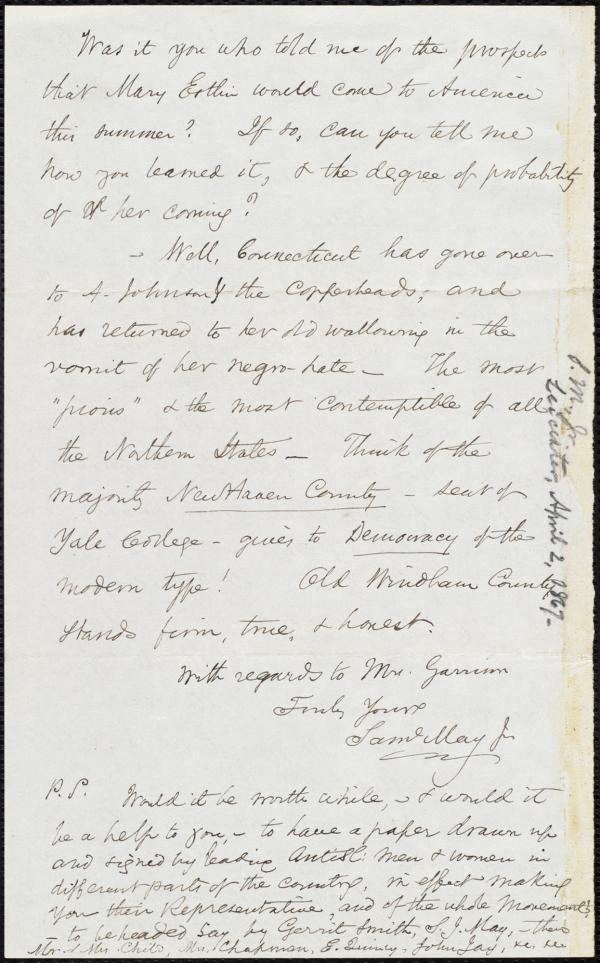 Was it you who told me of the prospects
that Mary Estlin would come to America
this summer? If so, can you tell me
how you learned it, & the degree of probability
of her coming?
– Well, Connecticut has gone over
to A. Johnson & the Copperheads; and
has returned to her old wallowing in the
vomit of her negro-hate – The most
"pious" & the most contemptible of all
the Northern States – Think of the
majority New Haven County – seat of
Yale College – gives to Democracy of the
modern type! Old Windham County
stands firm, true, & honest.
With regards to Mrs. Garrison
Truly Yours
Saml. May Jr
P.S. Would it be worth while, – & would it
be a help to you, – to have a paper drawn up
and signed by leading Antisl: men & women in
different parts of the country, in effect making
you their Representative, and of the whole Movement,
– to be headed say by Gerrit Smith, S. J. May, – then
Mr. & Mrs. Child, Mrs. Chapman, E. Quincy, John Jay, &c. &c
S. M. Jr.
Leicester, April 2, 1867–